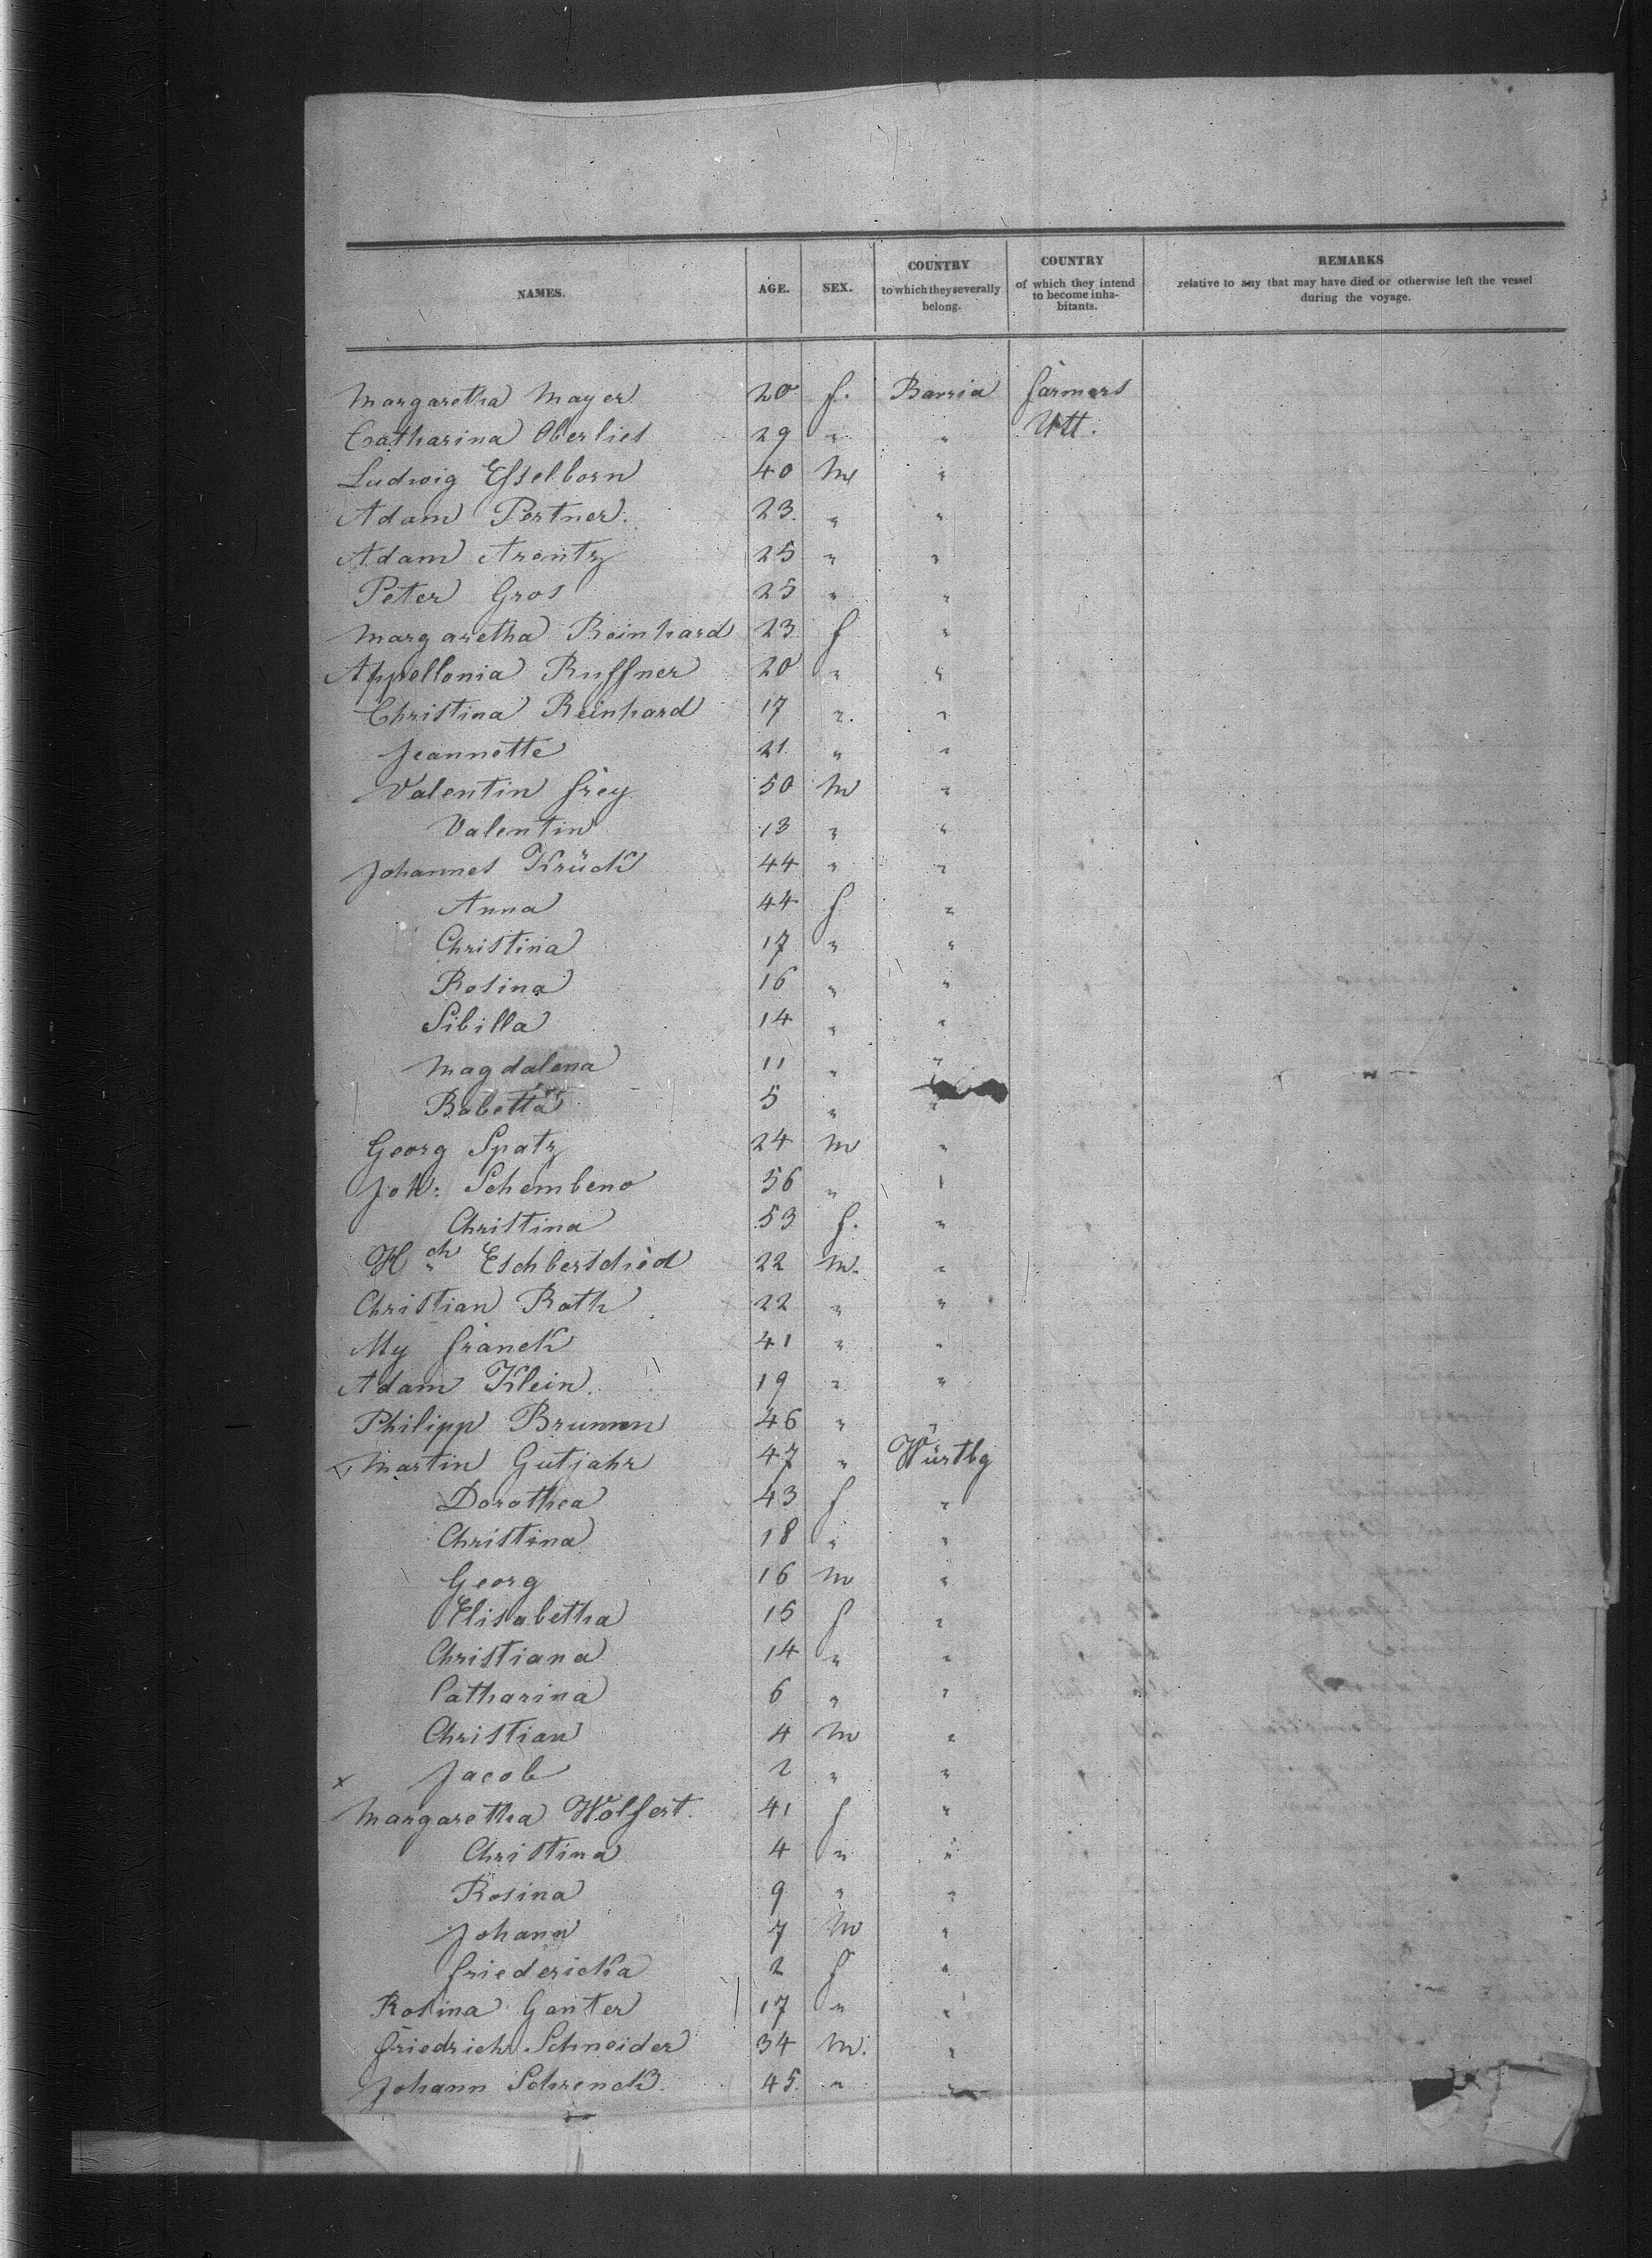 NAMES. AGE. SEX. COUNTRY to which they severally belong. COUNTRY of which they intend to become inhabitants. REMARKS relative to any that may have died or otherwise left the vessel during the voyage.
Margaretha Mayer 20 f. Bavria farmers
Catharina Oberlies 29 " " Utt.
Ludwig Esselborn 40 m "
Adam Pertner. 23. " "
Adam Arentz 25 " "
Peter Gros 25 " "
Margaretha Reinhard 23. f "
Appellonia Ruffner 20 " "
Christina Reinhard 17 " "
Jeannette 21 " "
Valentin Frey 50 m "
Valentin 13 " "
Johannes Krück 44 " "
Anna 44 f "
Christina 17 " "
Rosina 16 " "
Sibilla 14 " "
Magdalena 11 " "
Babetta 5 " "
Georg Spatz 24 m "
Joh: Schembeno 56 " "
Christina 53 f. "
Hch Eschberschied 22 m. "
Christian Roth 22 " "
My Franck 41 " "
Adam Klein. 19 " "
Philipp Brumm 46 " "
Martin Gutjahr 47 " Würtbg
Dorothea 43 f "
Christina 18 " "
Georg 16 m "
Elisabetha 15 f "
Christiana 14 " "
Catharina 6 " "
Christian 4 m "
x Jacob 2 " "
Margaretha Wolfert. 41 f "
Christina 4 " "
Rosina 9 " "
Johann 7 m "
Friedericka 2 f "
Rosina Ganter 17 " "
Friedrich Schneider 34 m. "
Johann Schrenck. 45. " "